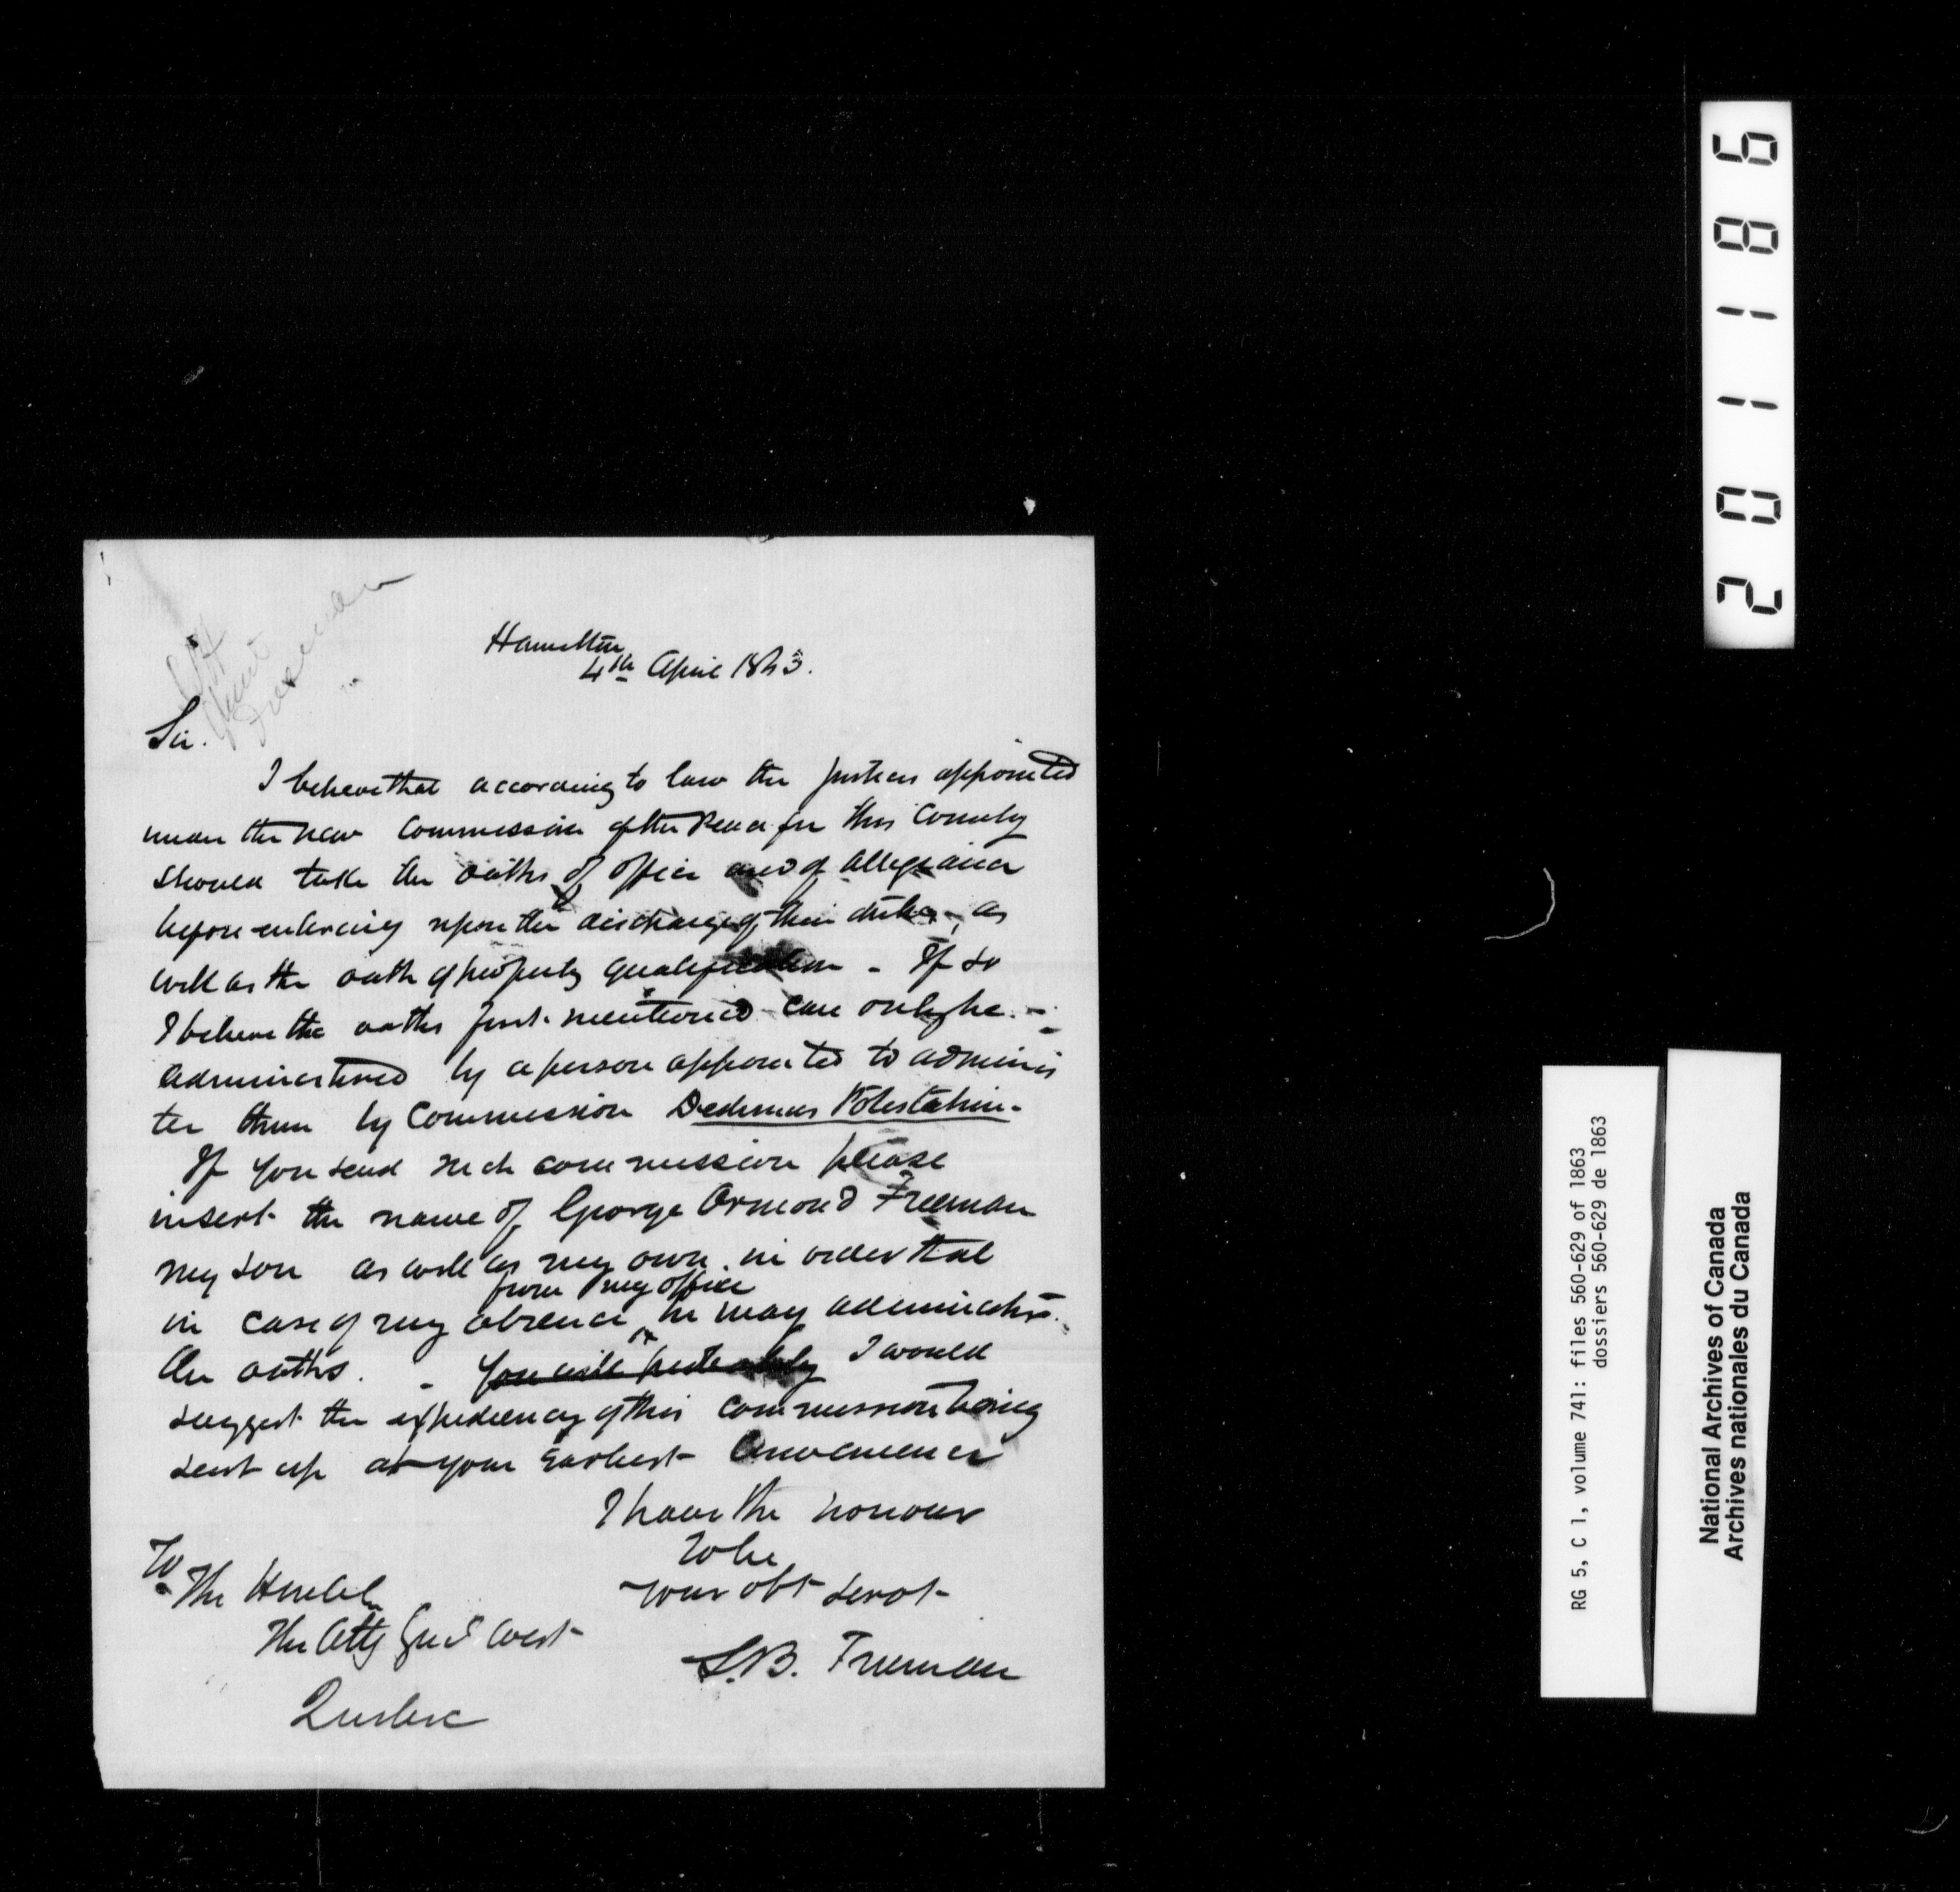 Hamilton
4th April 1863.
Sir.
I believe that according to law the Justices appointed
under the new Commission of the Peace for this County
should take the oaths of office and of allegiance
before entering upon the discharge of their duties, as
well as the oath of property qualification - If so
I believe the oaths first mentioned can only be -
administered by a person appointed to adminis
ter them by Commission Dedimus Potestatem -
If you send such commission please
insert the name of George Ormond Freeman
my son as well as my own. in order that
from my office
in case of my absence he may administer
the oaths. - You will preferably I would
suggest the expediency of this commission being
sent up at your earliest convenience
I have the honour
To be
your obt servt
S.B. Freeman
To
The Honble
The Atty Genl West
Quebec
Freeman
201186
RG 5, C 1, volume 741: files 560-629 of 1863
dossiers 560-629 de 1863
National Archives of Canada
Archives nationales du Canada